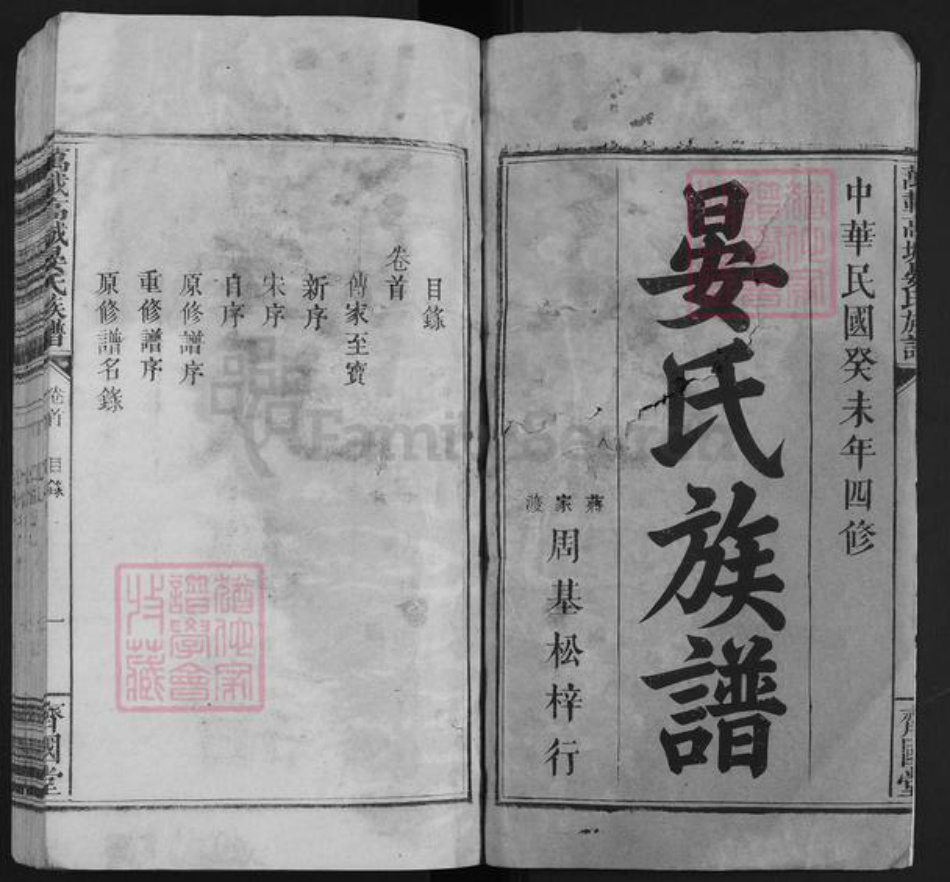 中華民國癸未年四修
晏氏族譜
蔣家渡
周基松梓行
齊國堂
目錄
卷首
傳家至寶
新序
宋序
自序
原修譜序
重修譜序
原修譜名錄
氏族譜
卷首
目錄
一
齊國堂
譜學會
收藏
FamilySearch